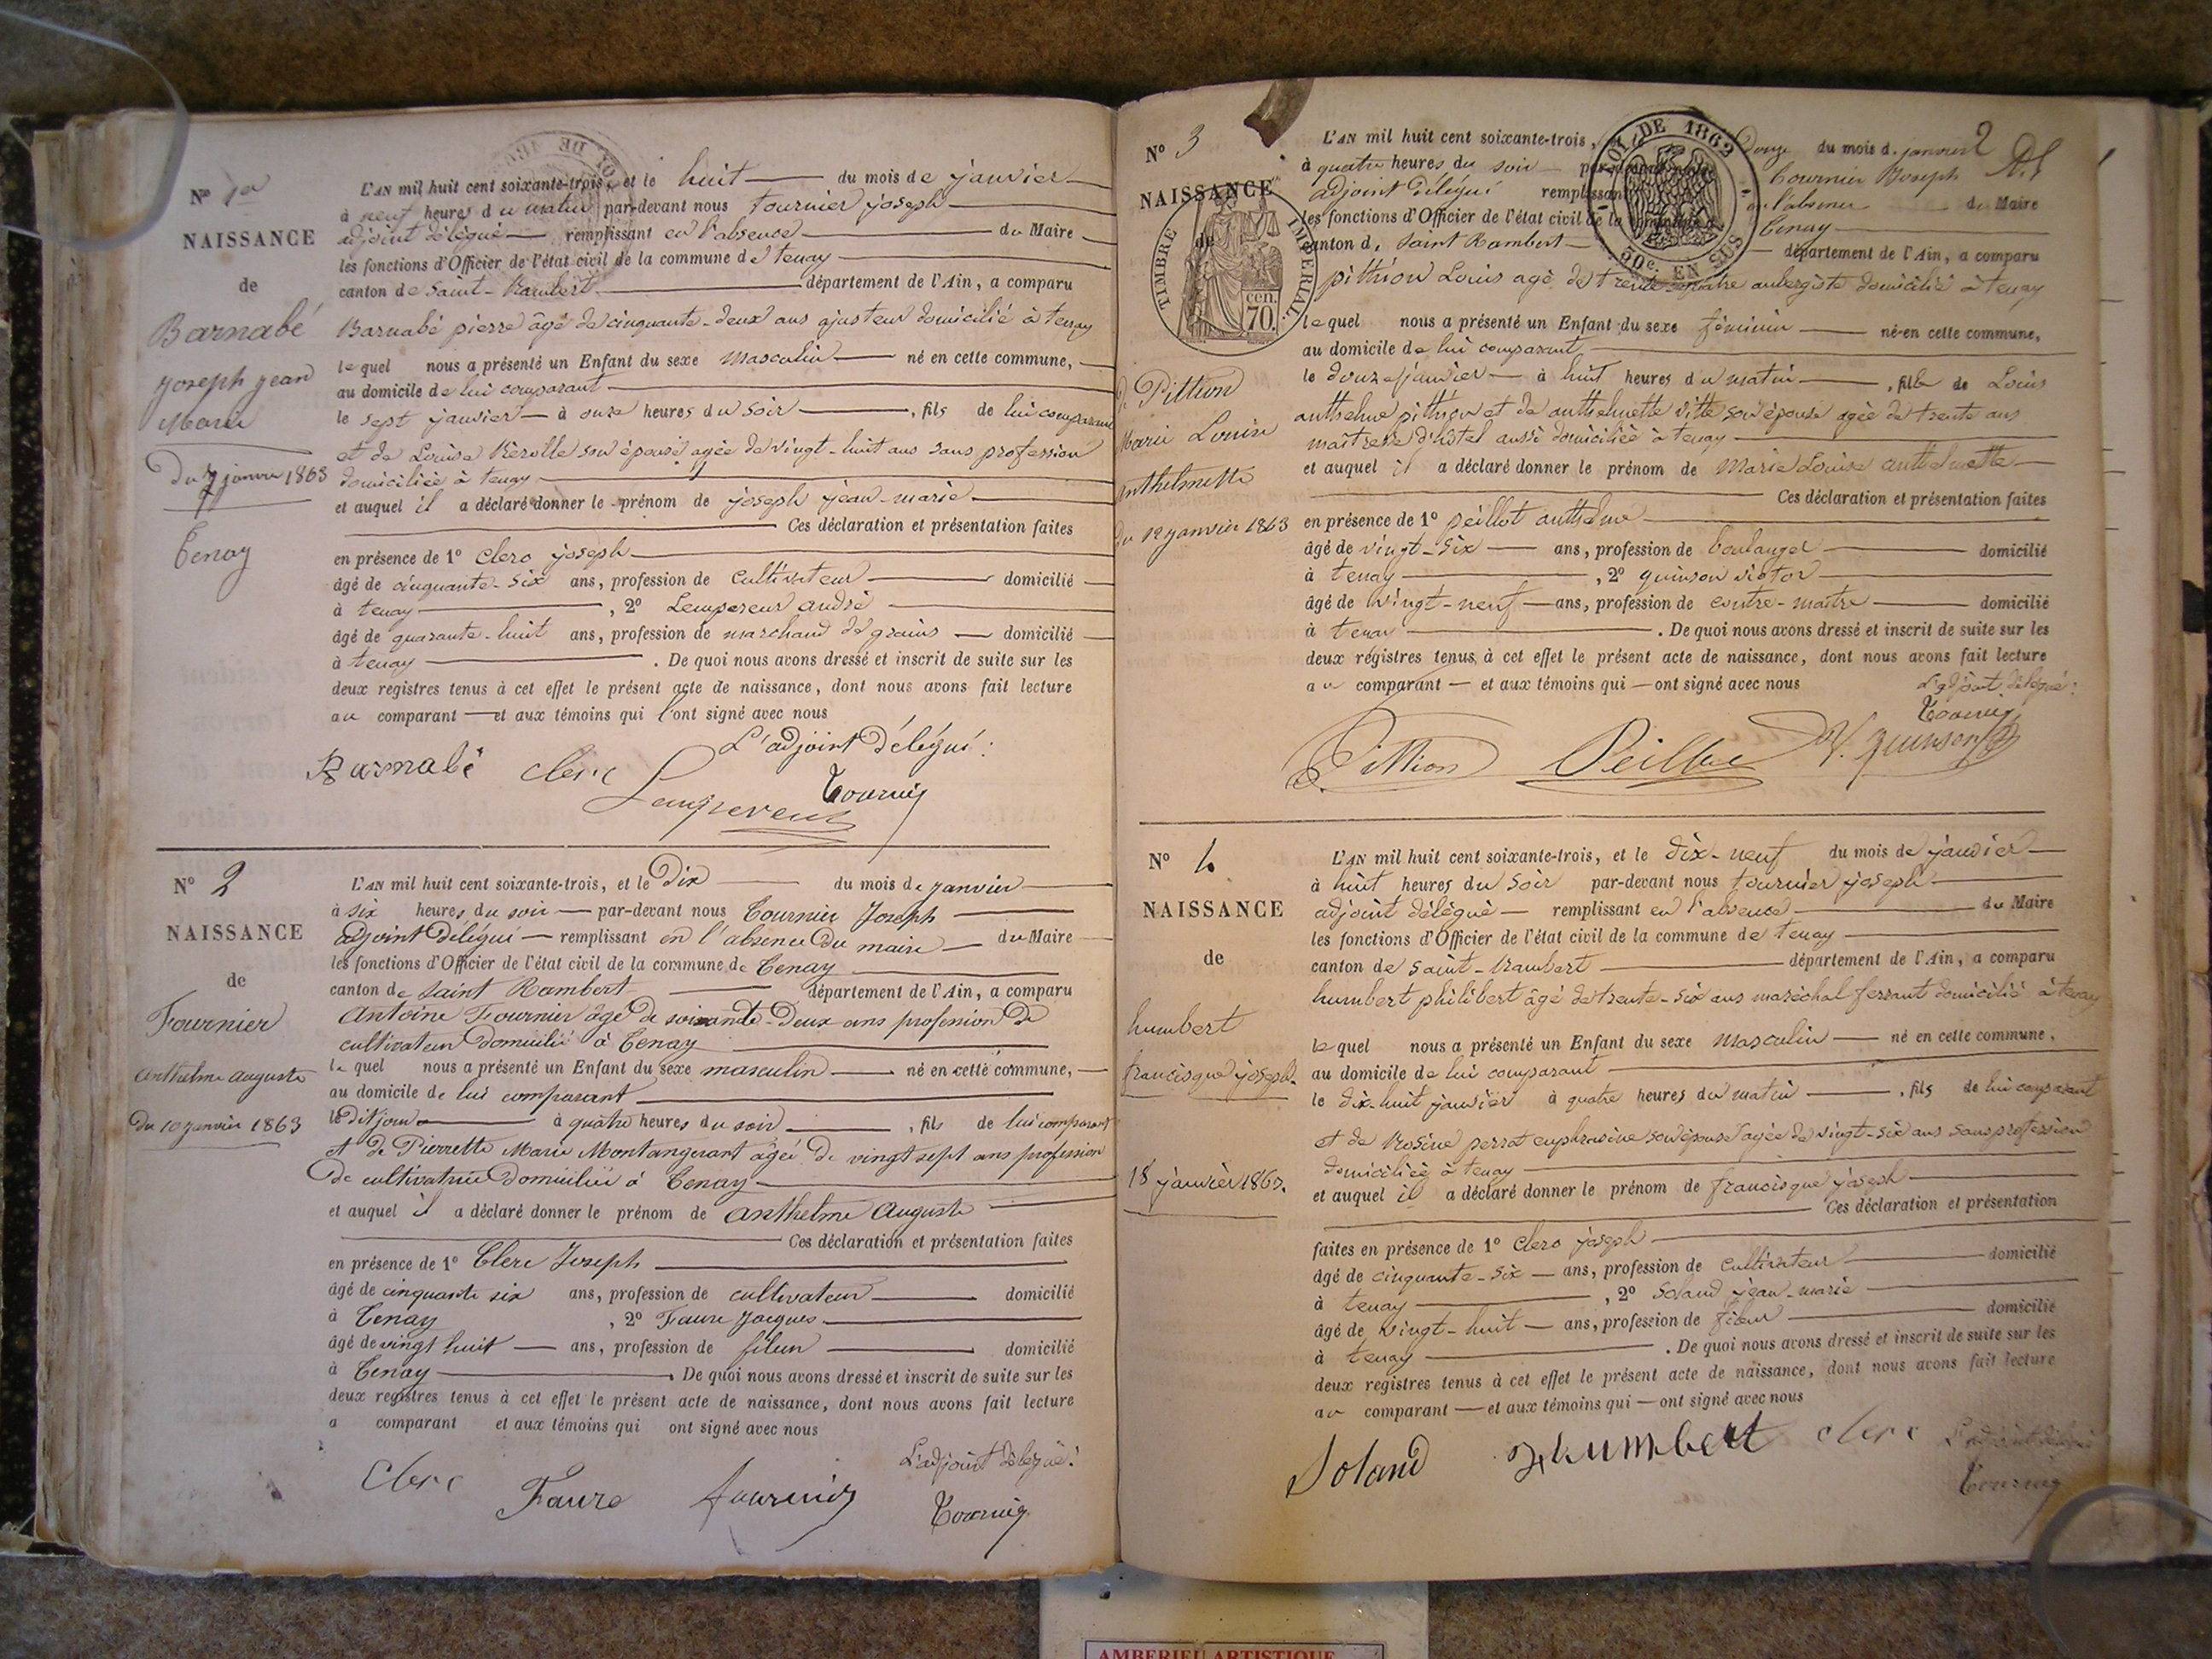 N° 1er
NAISSANCE
de
Barnabé
Joseph Jean
Marie
Du 7 janvier 1863
Tenay
L'AN mil huit cent soixante-trois, et le huit du mois de janvier
à neuf heures du matin par-devant nous tournier joseph
adjoint délégué remplissant en l'absence du Maire
les fonctions d'Officier de l'état civil de la commune de tenay
canton de Saint-Rambert département de l'Ain, a comparu
Barnabé pierre âgé de cinquante-deux ans ajusteur domicilié à tenay
lequel nous a présenté un Enfant du sexe masculin né en cette commune,
au domicile de lui comparant
le sept janvier à onze heures du soir, fils de lui comparant
et de Louise son épouse agée de vingt-huit ans sans profession
domiciliée à tenay
et auquel il a déclaré donner le prénom de joseph jean-marie
Ces déclaration et présentation faites
en présence de 1° Clerc joseph
âgé de cinquante-six ans, profession de cultivateur domicilié
à tenay, 2° Lempereur andré
âgé de quarante-huit ans, profession de marchand de grains domicilié
à tenay. De quoi nous avons dressé et inscrit de suite sur les
deux registres tenus à cet effet le présent acte de naissance, dont nous avons fait lecture
au comparant et aux témoins qui l'ont signé avec nous
L'adjoint Délégué :
Barnabé clerc Lempereur Tournier
N° 2
NAISSANCE
de
Fournier
Anthelme Auguste
du 10 janvier 1863
L'AN mil huit cent soixante-trois, et le Dix du mois de janvier
à six heures du soir par-devant nous Tournier Joseph
adjoint Délégué remplissant en l'absence Du maire du Maire
les fonctions d'Officier de l'état civil de la commune de Tenay
canton de Saint Rambert département de l'Ain, a comparu
Antoine Fournier âgé de soixante-Deux ans profession De
cultivateur Domicilié à Tenay
lequel nous a présenté un Enfant du sexe masculin né en cette commune,
au domicile de lui comparant
le dit jour à quatre heures du soir, fils de lui comparant
et de Pierrette Marie Montangerant agée De vingt sept ans profession
De cultivatrice Domiciliée à Tenay
et auquel il a déclaré donner le prénom de Anthelme Auguste
Ces déclaration et présentation faites
en présence de 1° Clerc Joseph
âgé de cinquante six ans, profession de cultivateur domicilié
à Tenay, 2° Faure Jacques
âgé de vingt huit ans, profession de fileur domicilié
à Tenay. De quoi nous avons dressé et inscrit de suite sur les
deux registres tenus à cet effet le présent acte de naissance, dont nous avons fait lecture
a comparant et aux témoins qui ont signé avec nous
L'adjoint délégué :
Clerc Faure fournier Tournier
N° 3
NAISSANCE
de
TIMBRE IMPERIAL
cen. 70.
LOI DE 1862
50c. EN SUS
Pittion
Marie Louise
Anthelmette
du 12 janvier 1863
2
L'AN mil huit cent soixante-trois, Douze du mois d. janvier
à quatre heures du soir Tournier Joseph
adjoint Délégué remplissant en l'absence du Maire
les fonctions d'Officier de l'état civil de la Tenay
canton d. Saint Rambert département de l'Ain, a comparu
pithion Louis agé de trente-quatre aubergiste domicilié à tenay
lequel nous a présenté un Enfant du sexe féminin né en cette commune,
au domicile de lui comparant
le douze janvier à huit heures du matin, fille de Louis
anthelme pithion et de anthelmette vitte son épouse agée de trente ans
maîtresse d'hôtel aussi domiciliée à tenay
et auquel il a déclaré donner le prénom de Marie Louise anthelmette
Ces déclaration et présentation faites
en présence de 1° peillot anthelme
âgé de vingt-six ans, profession de boulanger domicilié
à tenay, 2° quinson victor
âgé de vingt-neuf ans, profession de contre-maître domicilié
à tenay. De quoi nous avons dressé et inscrit de suite sur les
deux registres tenus à cet effet le présent acte de naissance, dont nous avons fait lecture
au comparant et aux témoins qui ont signé avec nous
L'adjoint délégué :
Tournier
Pittion V. quinson
N° 4
NAISSANCE
de
humbert
francisque joseph.
18 janvier 1863.
L'AN mil huit cent soixante-trois, et le dix-neuf du mois de janvier
à huit heures du soir par-devant nous tournier joseph
adjoint délégué remplissant en l'absence du Maire
les fonctions d'Officier de l'état civil de la commune de tenay
canton de saint-rambert département de l'Ain, a comparu
humbert philibert âgé de trente-six ans maréchal ferrant domicilié à tenay
lequel nous a présenté un Enfant du sexe masculin né en cette commune,
au domicile de lui comparant
le dix-huit janvier à quatre heures du matin, fils de lui comparant
et de Rosine perrot euphrasine son épouse agée de vingt-six ans sans profession
domiciliée à tenay
et auquel il a déclaré donner le prénom de francisque joseph
Ces déclaration et présentation
faites en présence de 1° Clerc joseph
âgé de cinquante-six ans, profession de cultivateur domicilié
à tenay, 2° Soland jean-marie
âgé de vingt-huit ans, profession de fileur domicilié
à tenay. De quoi nous avons dressé et inscrit de suite sur les
deux registres tenus à cet effet le présent acte de naissance, dont nous avons fait lecture
au comparant et aux témoins qui ont signé avec nous
Soland humbert clerc L'adjoint délégué
Tournier
AMBERIEU ARTISTIQUE